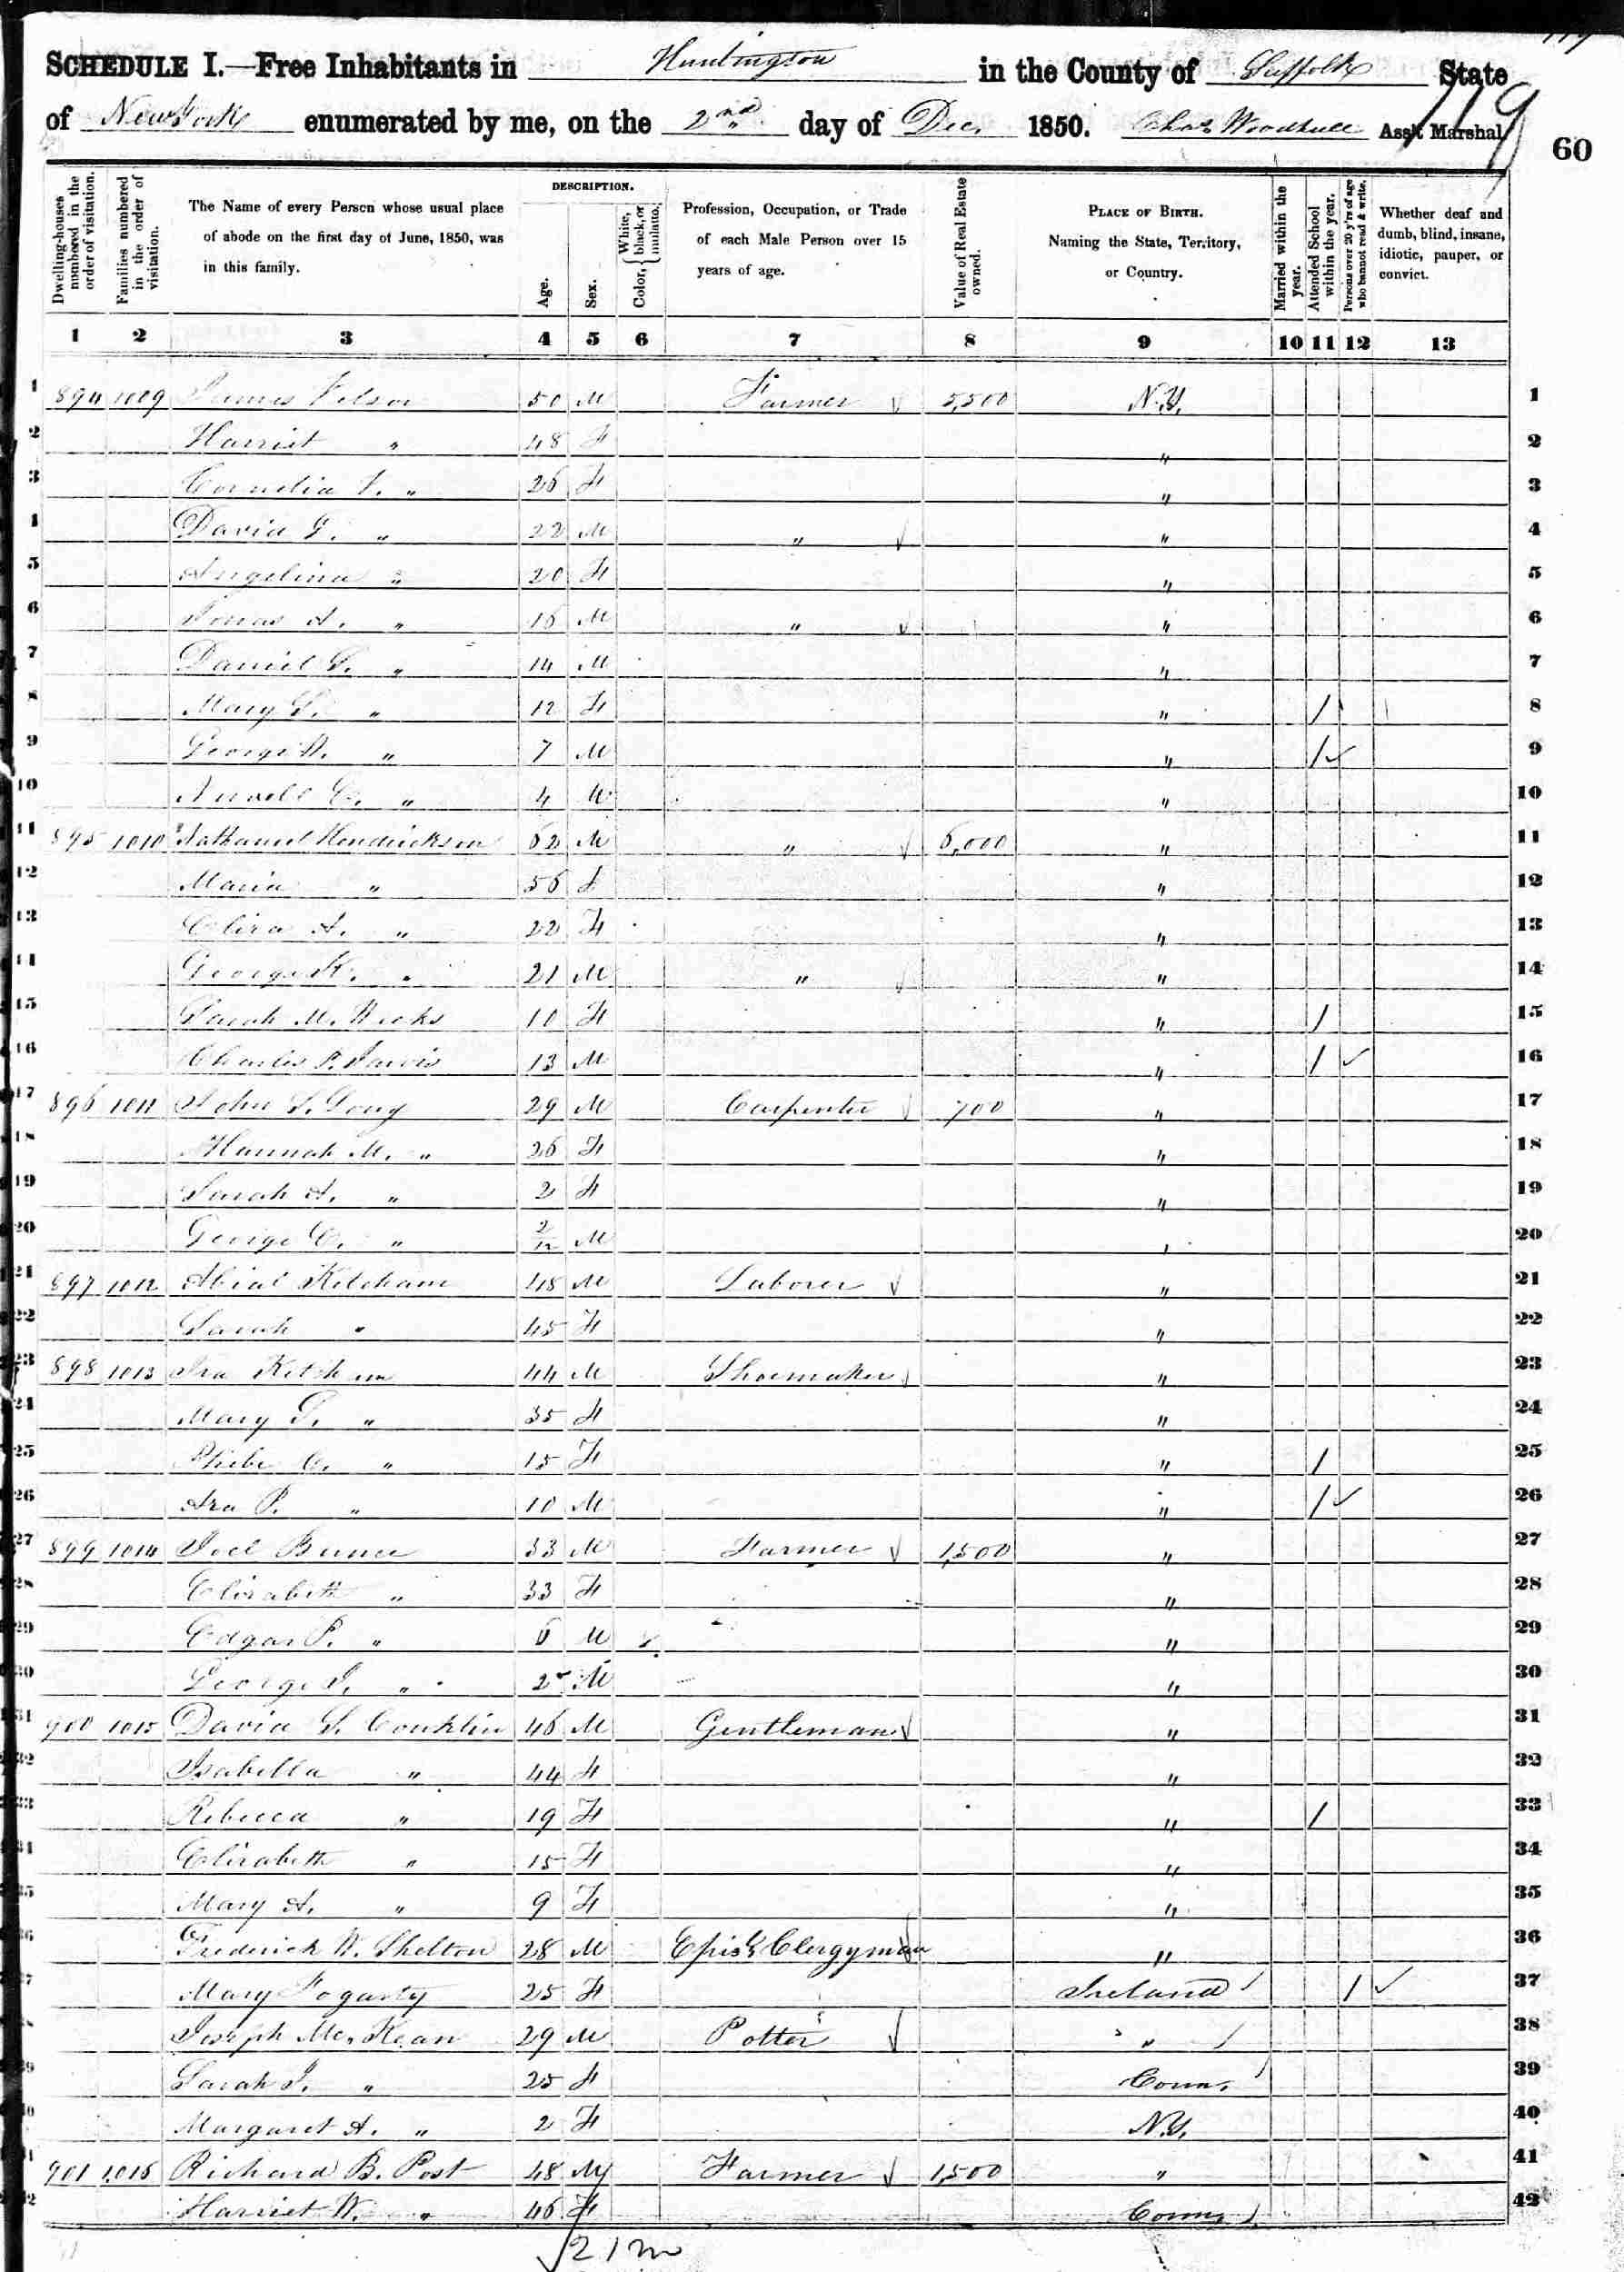 SCHEDULE I.—Free Inhabitants in Huntington in the County of Suffolk State
of New York enumerated by me, on the 2nd day of Dec. 1850. Chas Woodhull Ass't Marshal
119
60
Dwelling-houses numbered in the order of visitation.
Families numbered in the order of visitation.
The Name of every Person whose usual place of abode on the first day of June, 1850, was in this family.
DESCRIPTION.
Age.
Sex.
Color, { White, black, or mulatto.
Profession, Occupation, or Trade of each Male Person over 15 years of age.
Value of Real Estate owned.
PLACE OF BIRTH. Naming the State, Territory, or Country.
Married within the year.
Attended School within the year.
Persons over 20 y'rs of age who cannot read & write.
Whether deaf and dumb, blind, insane, idiotic, pauper, or convict.
1 2 3 4 5 6 7 8 9 10 11 12 13
1 894 1009 James 50 M Farmer 5,500 N.Y. 1
2 Harriet " 48 F " 2
3 Cornelia " 26 F " 3
4 David " 22 M " " 4
5 Angelina " 20 F " 5
6 A. " 16 M " " 6
7 Daniel S. " 14 M " 7
8 Mary " 12 F " / 8
9 George W. " 7 M " / ✓ 9
10 " 4 M " 10
11 895 1010 Nathaniel Hendrickson 62 M " 6,000 " 11
12 Maria " 56 F " 12
13 A. " 22 F " 13
14 George K. " 21 M " " 14
15 Sarah M. Wicks 10 F " / 15
16 Charles P. Jarvis 13 M " / ✓ 16
17 896 1011 John S. 29 M Carpenter 700 " 17
18 Hannah M. " 26 F " 18
19 Sarah A. " 2 F " 19
20 George C. " 2/12 M " 20
21 897 1012 Abial Ketcham 48 M Laborer " 21
22 Sarah " 45 F " 22
23 898 1013 Ira Ketcham 44 M Shoemaker " 23
24 Mary " 35 F " 24
25 Phebe C. " 15 F " / 25
26 Ira P. " 10 M " / ✓ 26
27 899 1014 Joel Bunce 33 M Farmer 1,500 " 27
28 Elizabeth " 33 F " 28
29 Edgar P. " 6 M " 29
30 George " 2 M " 30
31 900 1015 David S. Conklin 46 M Gentleman " 31
32 Isabella " 44 F " 32
33 Rebecca " 19 F " / 33
34 Elizabeth " 15 F " 34
35 Mary A. " 9 F " 35
36 Frederick W. Shelton 28 M Episl Clergyman " 36
37 Mary Fogarty 25 F Ireland / ✓ 37
38 Joseph Mc.Kean 29 M Potter " 38
39 Sarah J. " 25 F Conn. 39
40 Margaret A. " 2 F N.Y. 40
41 901 1016 Richard B. Post 48 M Farmer 1,500 " 41
42 Harriet W. " 46 F Conn. 42
21 m